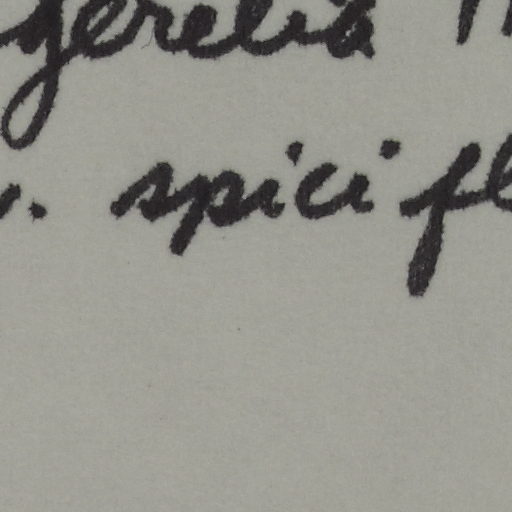 gerelia
v. spicifl